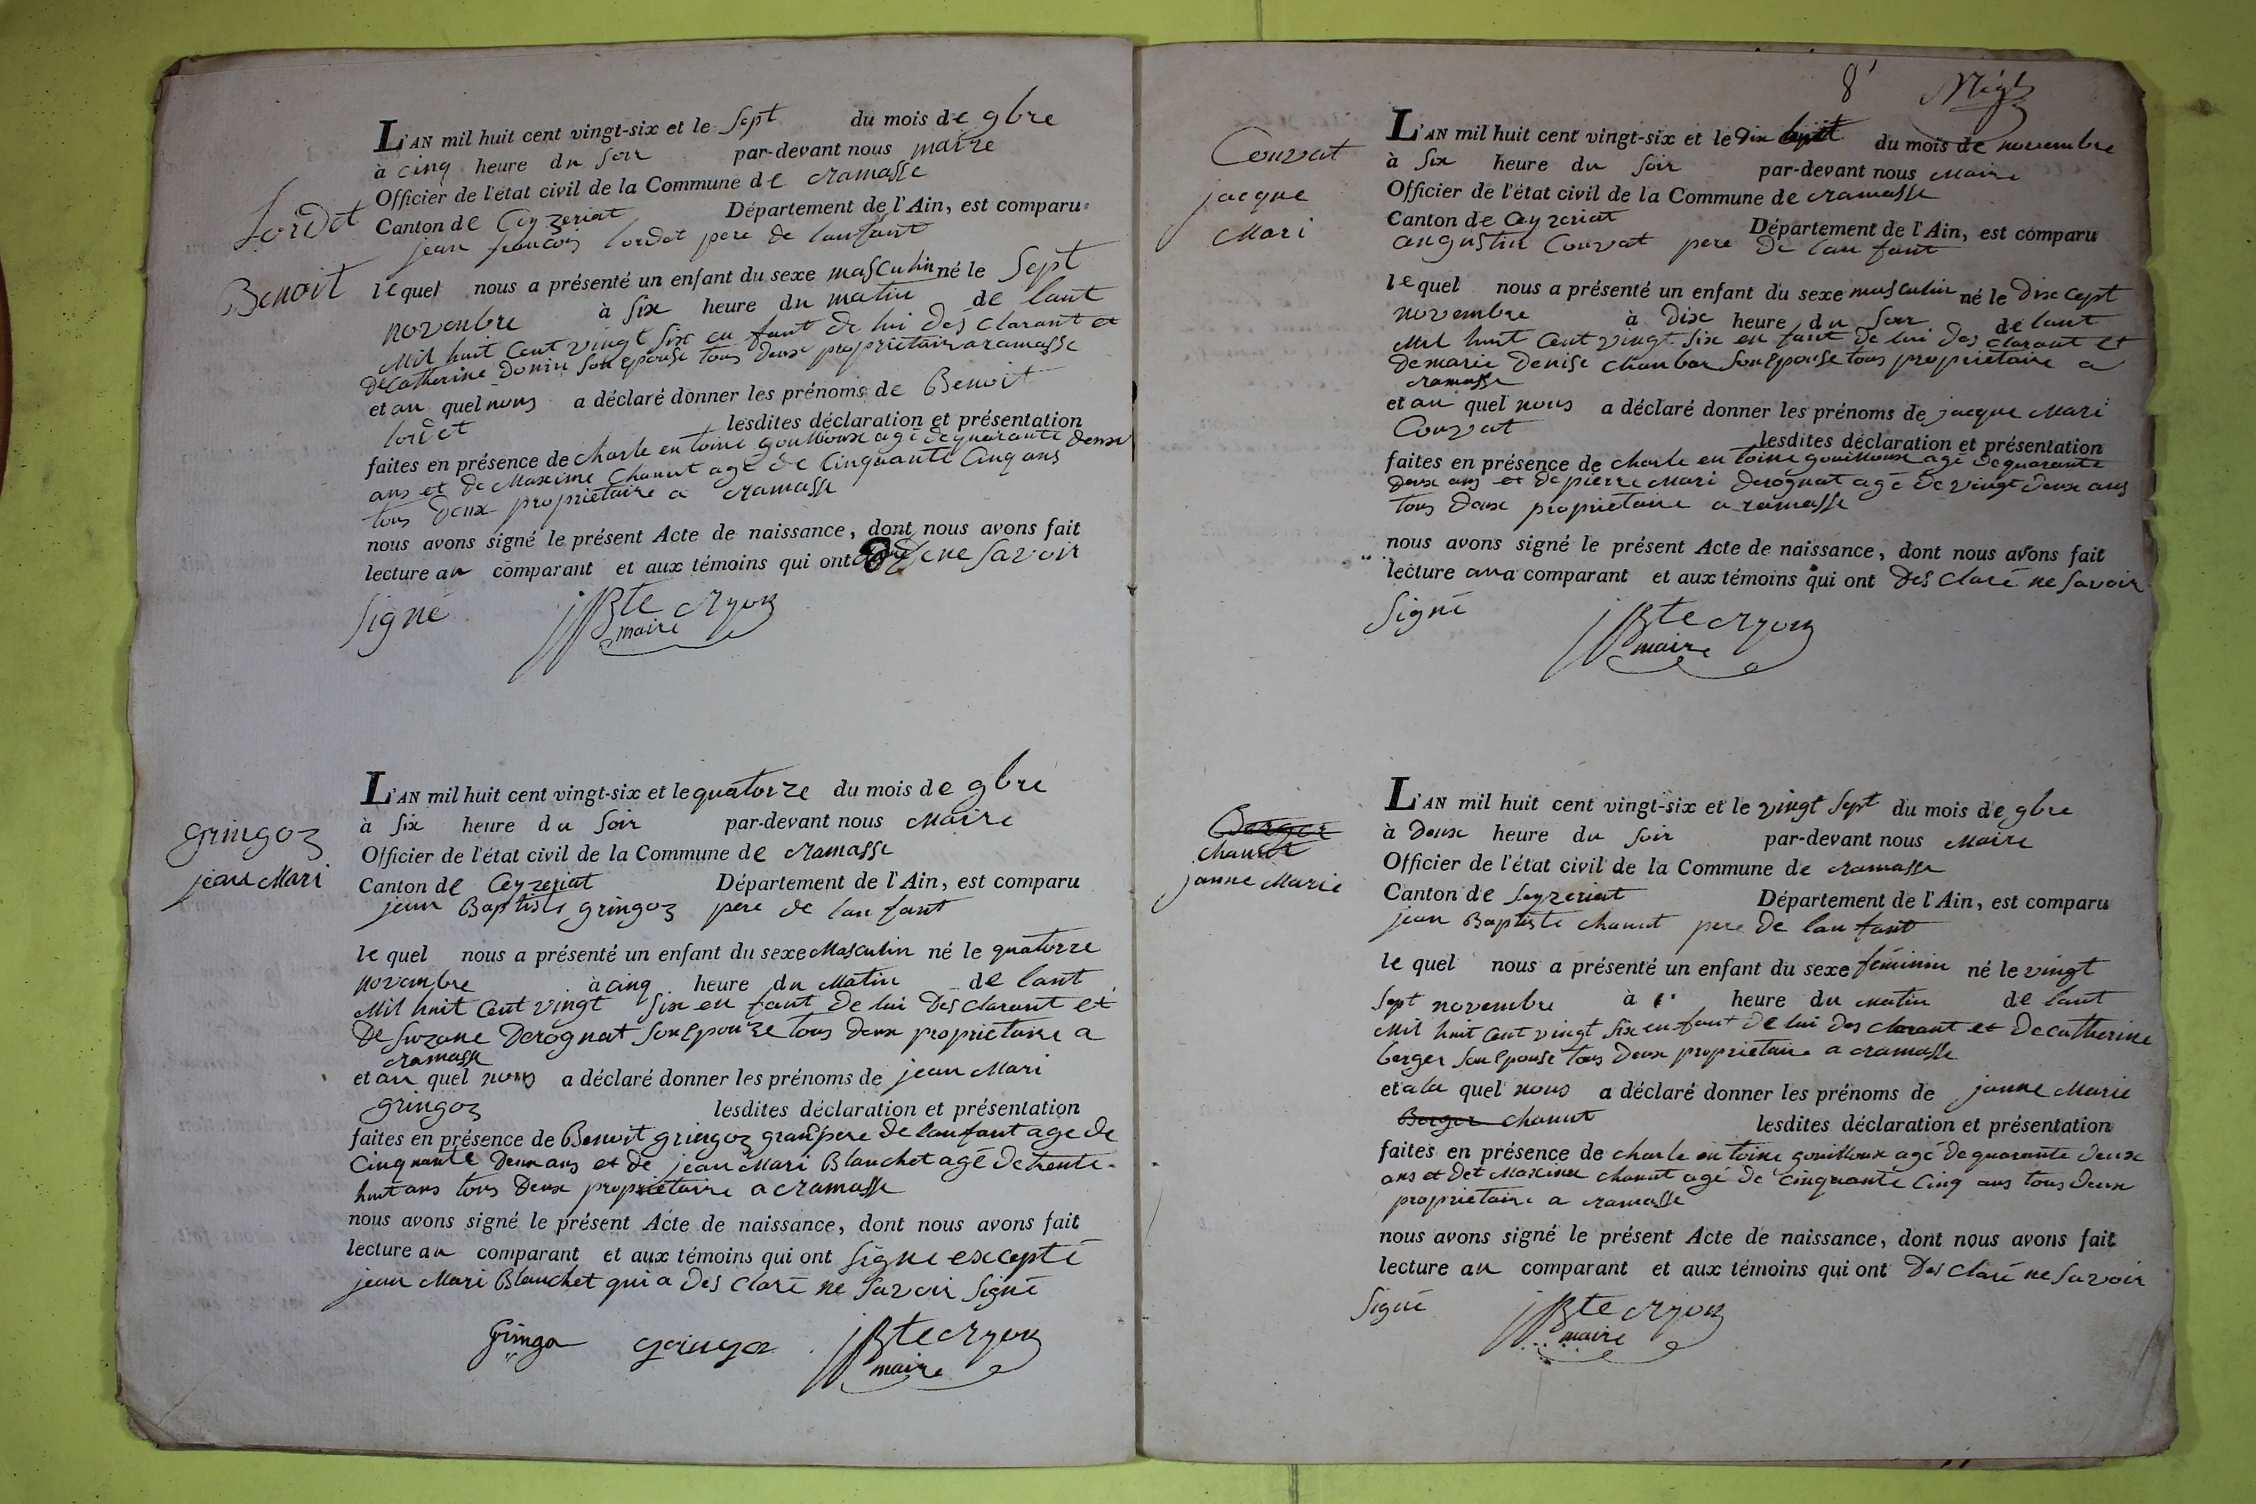 L'AN mil huit cent vingt-six et le sept du mois de 9bre
à cinq heure du soir par-devant nous maire
Officier de l'état civil de la Commune de cramasse
Canton de Ceyzeriat Département de l'Ain, est comparu
jean francois lordet pere de lanfant
Lordet
Benoit
lequel nous a présenté un enfant du sexe masculin né le sept
novembre à six heure du matin de lant
mil huit cent vingt six en fant de lui des clarant et
de catherine Donin son epouse tous deux proprietaire a ramasse
et au quel nous a déclaré donner les prénoms de Benoit
lordet lesdites déclaration et présentation
faites en présence de charle en toine gouilloux agé de quarante deux
ans et de Maxime chanut agé de cinquante cinq ans
tous deux proprietaire a cramasse
nous avons signé le présent Acte de naissance, dont nous avons fait
lecture au comparant et aux témoins qui ont ne savoir
signé
JBte cryon
maire
L'AN mil huit cent vingt-six et le quatorze du mois de 9bre
à six heure du soir par-devant nous Maire
Officier de l'état civil de la Commune de cramasse
gringoz
jean Mari
Canton de Ceyzeriat Département de l'Ain, est comparu
jean Baptiste gringoz pere de lan fant
le quel nous a présenté un enfant du sexe Masculin né le quatorze
novembre à cinq heure du Matin de lant
Mil huit cent vingt six en fant de lui des clarant et
de suzane Derognat son epouze tous deux proprietaire a
cramasse
et au quel nous a déclaré donner les prénoms de jean Mari
gringoz lesdites déclaration et présentation
faites en présence de Benoit gringoz granpere de lanfant age de
cinquante deux ans et de jean Mari Blanchet agé de trente
huit ans tous deux proprietaire a cramasse
nous avons signé le présent Acte de naissance, dont nous avons fait
lecture au comparant et aux témoins qui ont signe excepté
jean Mari Blanchet qui a des claré ne savoir signé
Gringo gringoz JBte cryon
maire
8
L'AN mil huit cent vingt-six et le dix huit du mois de novembre
à six heure du soir par-devant nous Maire
Officier de l'état civil de la Commune de cramasse
Convat
jacque
Mari
Canton de Ceyzeriat Département de l'Ain, est comparu
augustin Convat pere de lan fant
lequel nous a présenté un enfant du sexe masculin né le dix cept
novembre à dix heure du soir de lant
Mil huit cent vingt six en fant de lui des clarant et
de marie denise chambar son epouse tous proprietaire a
cramasse
et au quel nous a déclaré donner les prénoms de jacque Mari
Convat lesdites déclaration et présentation
faites en présence de charle en toine gouilloux agé de quarante
deux ans et de pierre Mari derognat agé de vingt deux ans
tous deux proprietaire a ramasse
nous avons signé le présent Acte de naissance, dont nous avons fait
lecture au a comparant et aux témoins qui ont des claré ne savoir
signé
JBte cryon
maire
L'AN mil huit cent vingt-six et le vingt sept du mois de 9bre
à deux heure du soir par-devant nous Maire
Officier de l'état civil de la Commune de cramasse
Berger
chanut
janne Marie
Canton de Seyzeriat Département de l'Ain, est comparu
jean Baptiste chanut pere de lan fant
le quel nous a présenté un enfant du sexe féminin né le vingt
sept novembre à 1 heure du matin de lant
Mil huit cent vingt six en fant de lui des clarant et de catherine
berger son epouse tous deux proprietaire a cramasse
et a la quel nous a déclaré donner les prénoms de janne Marie
Berger chanut lesdites déclaration et présentation
faites en présence de charle en toine gouilloux agé de quarante deux
ans et det Maxime chanut agé de cinquante cinq ans tous deux
proprietaire a cramasse
nous avons signé le présent Acte de naissance, dont nous avons fait
lecture au comparant et aux témoins qui ont des claré ne savoir
signé
JBte cryon
maire